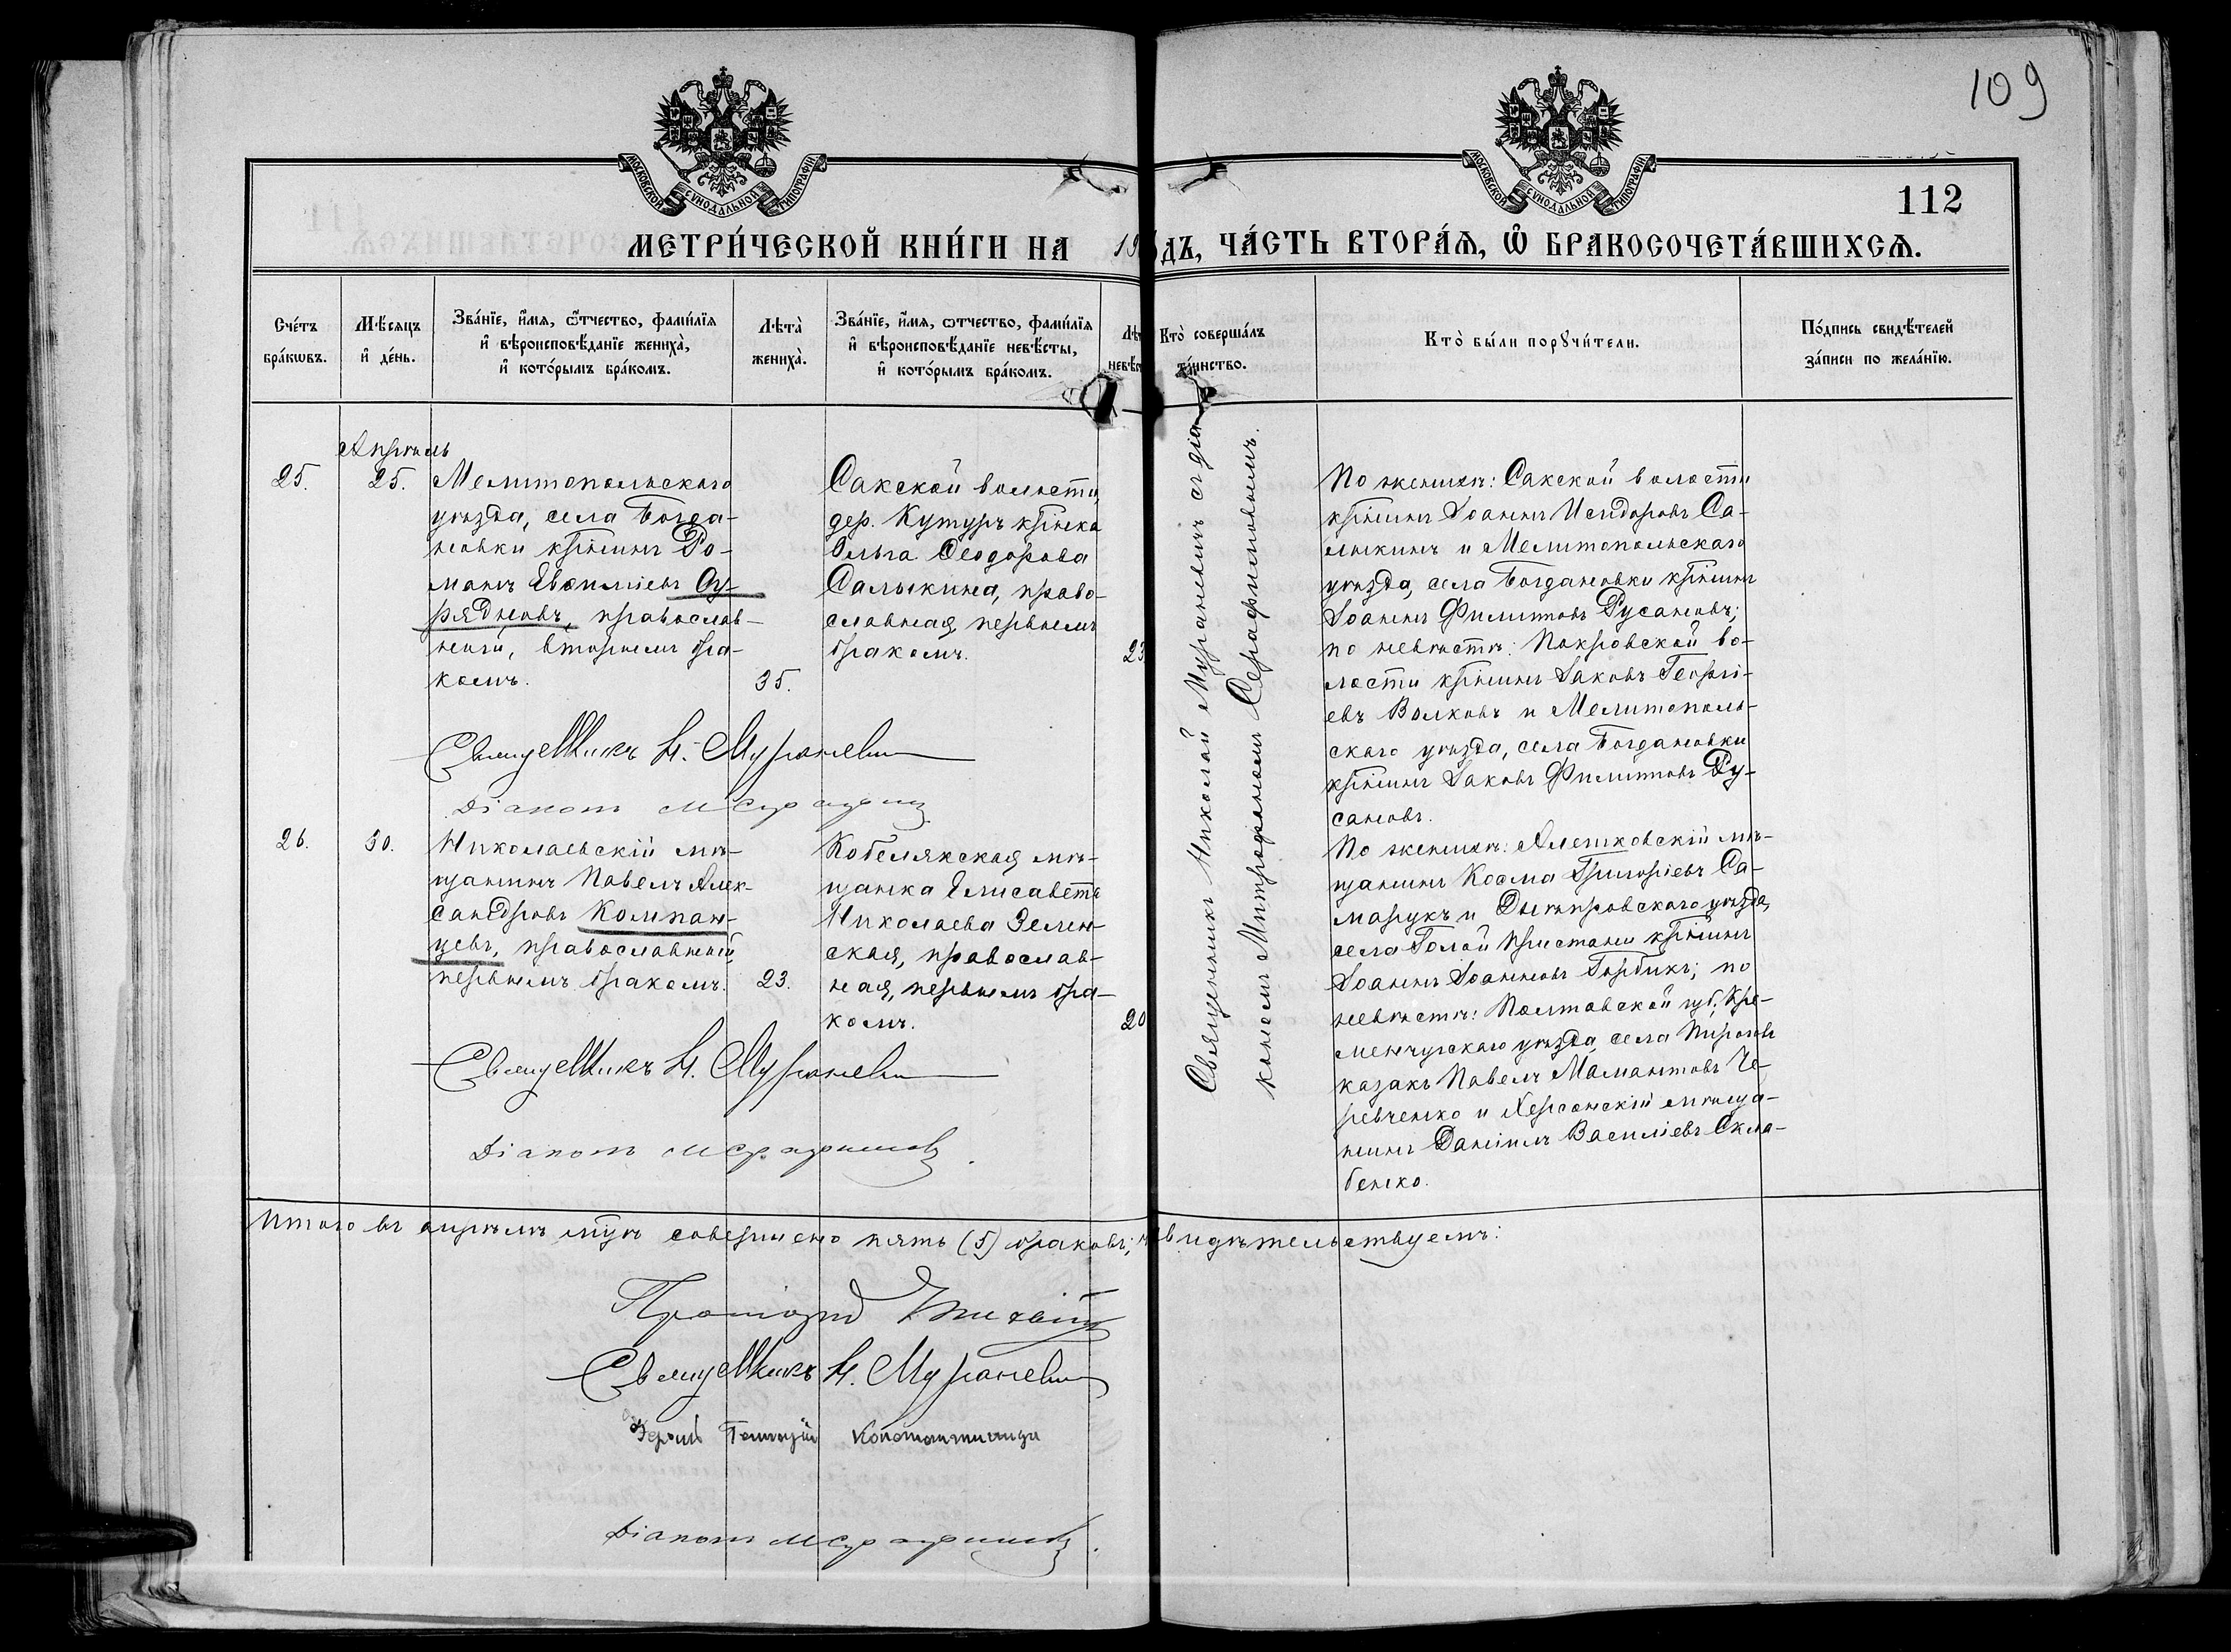 109
МОСКОВСКОЙ СУНОДАЛЬНОЙ ТИПОГРАФІИ
МОСКОВСКОЙ СУНОДАЛЬНОЙ ТИПОГРАФІИ
112
МЕТРИ́ЧЕСКОЙ КНИ́ГИ НА 19 ДЪ, ЧА́СТЬ ВТОРА́Ѧ, Ѿ БРАКОСОЧЕТА́ВШИХСѦ.
Сче́тъ бра́кѡвъ.
Мѣ́сяцъ и҆ де́нь.
Зва́нїе, и҆́мя, ѻ҆́тчество, фами́лїя
и҆ вѣроисповѣ́данїе жениха̀,
и҆ кото́рымъ бра́комъ.
Лѣта̀ жениха̀.
Зва́нїе, и҆́мя, ѻтчество, фами́лїя
и҆ вѣроисповѣ́данїе невѣ́сты,
и҆ кото́рымъ бра́комъ.
Лѣ
невѣ
Кто̀ соверша́лъ
та́инство.
Кто̀ бы́ли порꙋчи́тели.
По́дпись свидѣ́телей
за́писи по жела́нїю.
Апрѣль
25.
25.
Мелитопольскаго
уѣзда, села Богда-
новки кр҃нинъ Ро-
манъ Су-
рядновъ, православ-
ный, вторымъ бра-
комъ.
35.
Сакской волости,
дер. Кутуръ кр҃нка
Ольга Ѳеодорова
Салыкина, право-
славная, первымъ
бракомъ.
23
Священникъ Николай Мураневичъ съ діа-
кономъ Митрофаномъ Серафимовымъ.
По женихѣ: Сакской волости
кр҃нинъ Іоаннъ Исидоровъ Са-
лыкинъ и Мелитопольскаго
уѣзда, села Богдановки кр҃нинъ
Іоаннъ Филиповъ Русановъ;
по невѣстѣ: Покровской во-
лости кр҃нинъ Іаковъ Георгі-
евъ Волковъ и Мелитополь-
скаго уѣзда, села Богдановки
кр҃нинъ Іаковъ Филиповъ Ру-
сановъ.
Священникъ Н. Мураневич
Діаконъ М Серафимовъ
26.
30.
Николаевскій мѣ-
щанинъ Павелъ Алек-
сандровъ Компан-
цевъ, православный
первымъ бракомъ.
23.
Кобелякская мѣ-
щанка Елисавета
Николаева Зелен-
ская, православ-
ная, первымъ бра-
комъ.
20
По женихѣ: Алешковскій мѣ-
щанинъ Косма Григоріевъ Са-
марукъ и Днѣпровскаго уѣзда,
села Голой Пристани кр҃нинъ
Іоаннъ Іоанновъ Горбикъ; по
невѣстѣ: Полтавской губ. Кре-
менчугскаго уѣзда села Пироговъ
казакъ Павелъ Мамантовъ Че-
ревченко и Херсонскій мѣща-
нинъ Даніилъ Василіевъ Скла-
бенко.
Священникъ Н. Мураневич
Діаконъ М Серафимовъ.
Итого въ апрѣлѣ мц҃ѣ совершено пять (5) браковъ; свидѣтельствуемъ:
Протоіерей
Священникъ Н. Мураневич
Константиниди
Діаконъ М Серафимовъ.